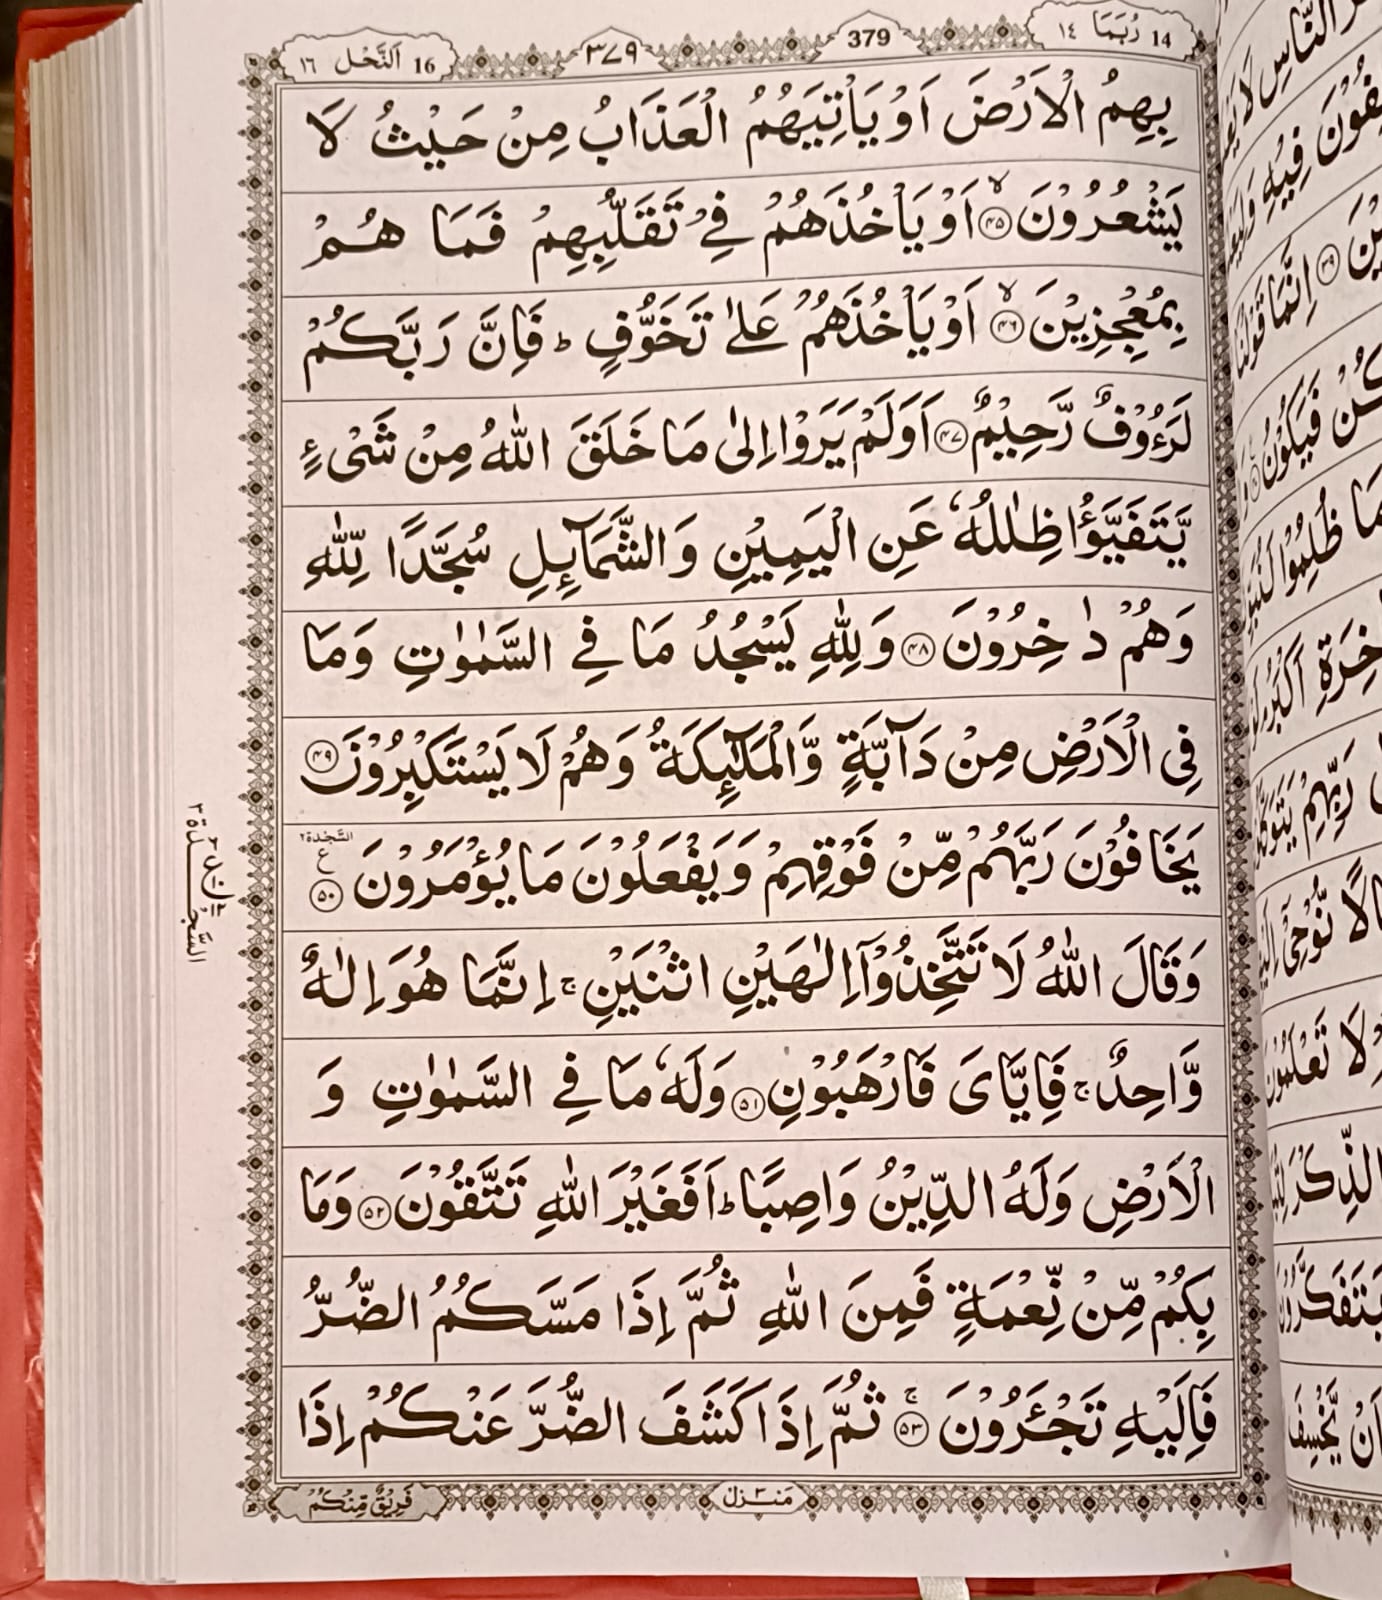 14 رُبَمَا ١٤
379
٣٧٩
16 اَلنَّحْل ١٦
بِهِمُ الْاَرْضَ اَوْ يَاْتِيَهُمُ الْعَذَابُ مِنْ حَيْثُ لَا
يَشْعُرُوْنَ ﴿۴۵﴾ۙ اَوْ يَاْخُذَهُمْ فِيْ تَقَلُّبِهِمْ فَمَا هُمْ
بِمُعْجِزِيْنَ ﴿۴۶﴾ۙ اَوْ يَاْخُذَهُمْ عَلٰى تَخَوُّفٍ ؕ فَاِنَّ رَبَّكُمْ
لَرَءُوْفٌ رَّحِيْمٌ ﴿۴۷﴾ اَوَلَمْ يَرَوْا اِلٰى مَا خَلَقَ اللّٰهُ مِنْ شَىْءٍ
يَّتَفَيَّؤُا ظِلٰلُهٗ عَنِ الْيَمِيْنِ وَالشَّمَآىِٕلِ سُجَّدًا لِّلّٰهِ
وَهُمْ دٰخِرُوْنَ ﴿۴۸﴾ وَلِلّٰهِ يَسْجُدُ مَا فِي السَّمٰوٰتِ وَمَا
فِي الْاَرْضِ مِنْ دَآبَّةٍ وَّالْمَلٰٓىِٕكَةُ وَهُمْ لَا يَسْتَكْبِرُوْنَ ﴿۴۹﴾
يَخَافُوْنَ رَبَّهُمْ مِّنْ فَوْقِهِمْ وَيَفْعَلُوْنَ مَا يُؤْمَرُوْنَ ﴿۵۰﴾ ع السَّجْدة
وَقَالَ اللّٰهُ لَا تَتَّخِذُوْٓا اِلٰهَيْنِ اثْنَيْنِ ۚ اِنَّمَا هُوَ اِلٰهٌ
وَّاحِدٌ ۚ فَاِيَّايَ فَارْهَبُوْنِ ﴿۵۱﴾ وَلَهٗ مَا فِي السَّمٰوٰتِ وَ
الْاَرْضِ وَلَهُ الدِّيْنُ وَاصِبًا ؕ اَفَغَيْرَ اللّٰهِ تَتَّقُوْنَ ﴿۵۲﴾ وَمَا
بِكُمْ مِّنْ نِّعْمَةٍ فَمِنَ اللّٰهِ ثُمَّ اِذَا مَسَّكُمُ الضُّرُّ
فَاِلَيْهِ تَجْـَٔرُوْنَ ﴿۵۳﴾ۚ ثُمَّ اِذَا كَشَفَ الضُّرَّ عَنْكُمْ اِذَا
مَنْزِل ٣
فَرِيْقٌ مِّنْكُمْ